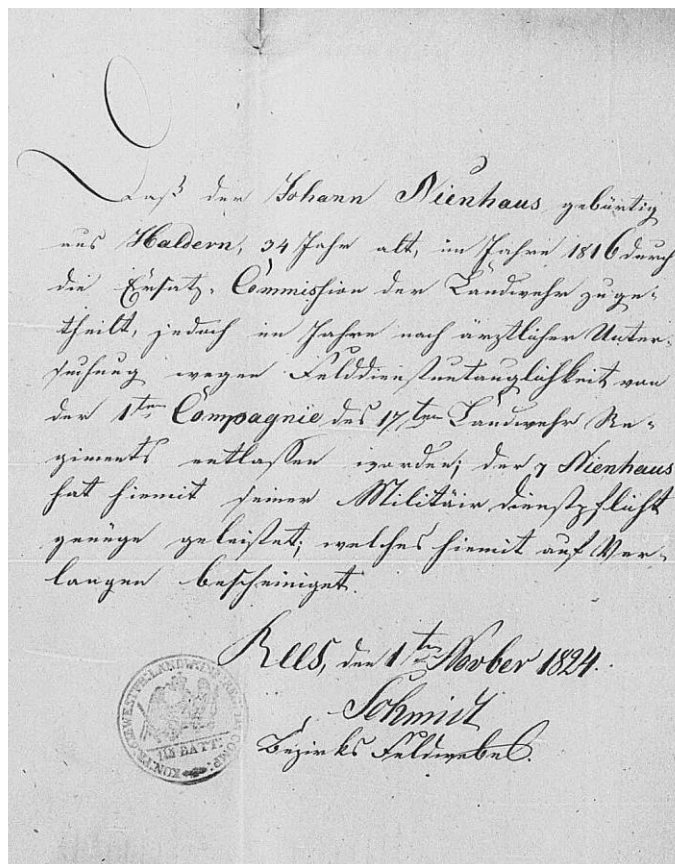 Daß der Johann Nienhaus gebürtig
aus Haldern, 34 Jahr alt, im Jahre 1816 durch
die Ersatz-Commission der Landwehr zuge-
theilt, jedoch im Jahre nach ärztlicher Unter-
suchung wegen Felddienstuntauglichkeit von
der 1ten Compagnie des 17ten Landwehr Re-
giments entlassen worden; der p Nienhaus
hat hiemit seiner Militäir dienstpflicht
genüge geleistet; welches hiemit auf Ver-
langen bescheiniget.
Rees, den 1ten Novber 1824.
Schmidt
Bezirks Feldwebel.
BATT: